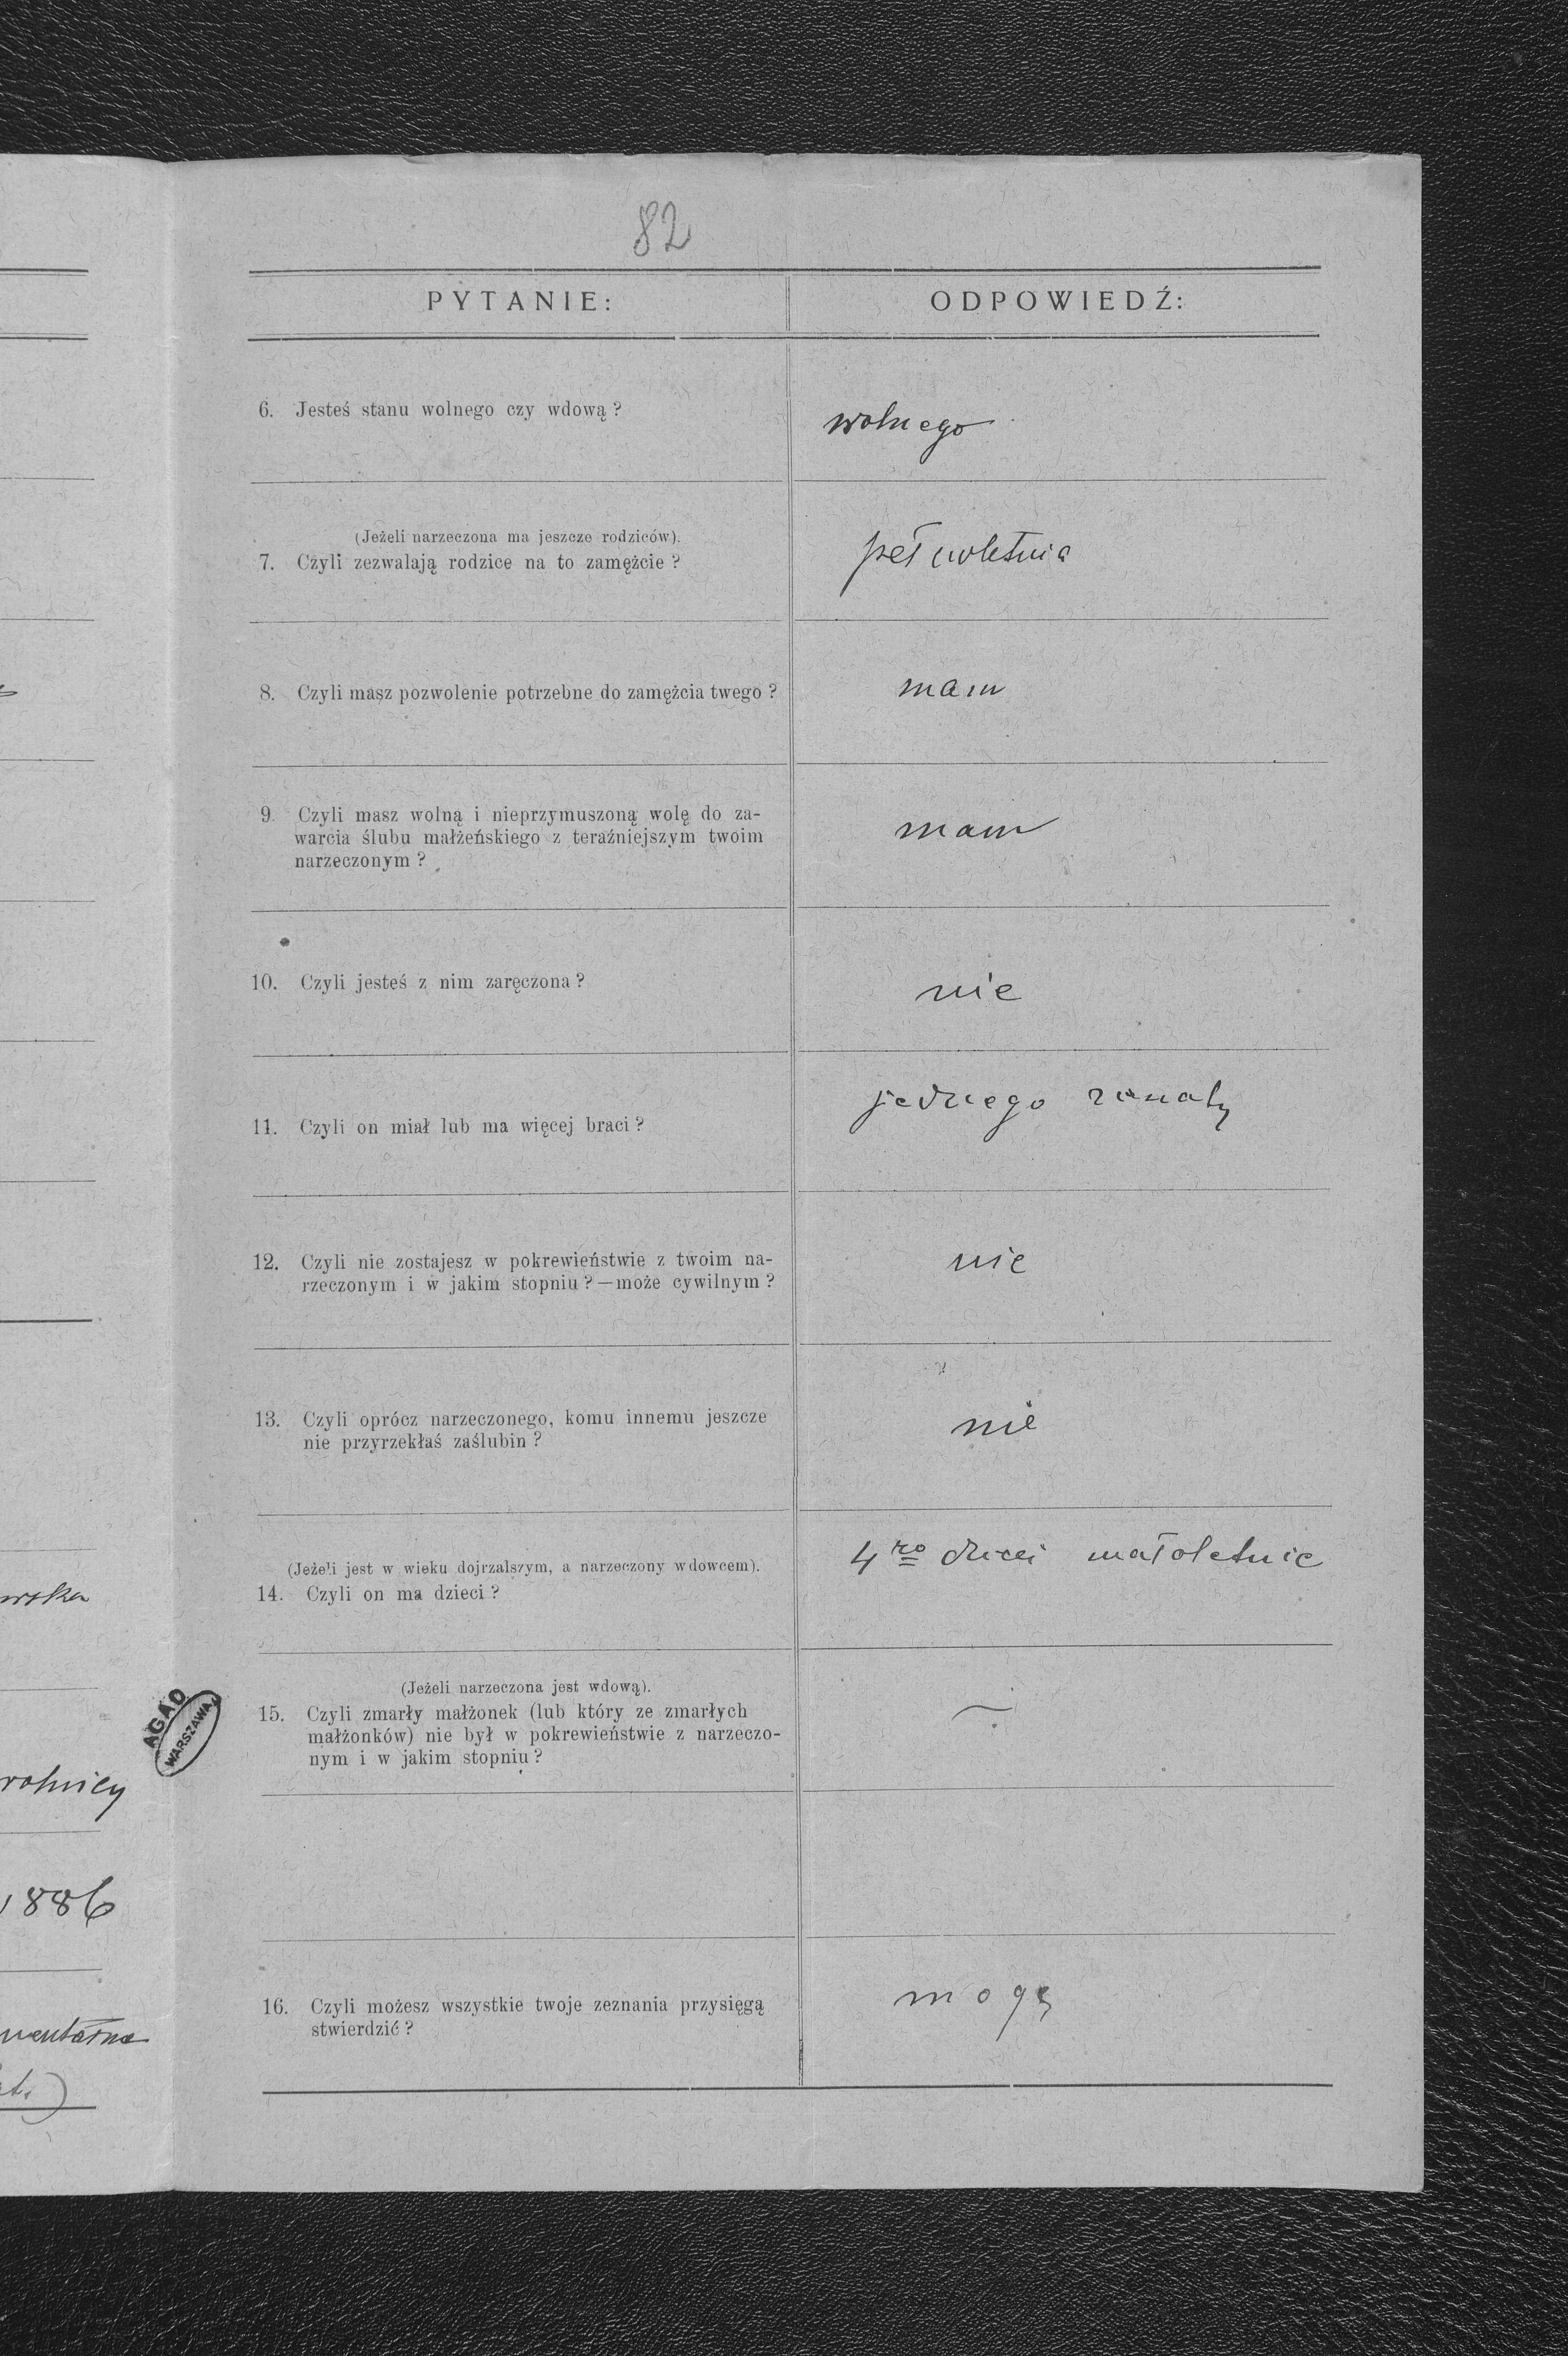 82
PYTANIE:
ODPOWIEDŹ:
6. Jesteś stanu wolnego czy wdową ?
wolnego
(Jeżeli narzeczona ma jeszcze rodziców).
7. Czyli zezwalają rodzice na to zamężcie ?
pełnoletnia
8. Czyli masz pozwolenie potrzebne do zamężcia twego ?
mam
9. Czyli masz wolną i nieprzymuszoną wolę do za-
warcia ślubu małżeńskiego z teraźniejszym twoim
narzeczonym ?
mam
10. Czyli jesteś z nim zaręczona ?
nie
11. Czyli on miał lub ma więcej braci ?
jednego żonaty
12. Czyli nie zostajesz w pokrewieństwie z twoim na-
rzeczonym i w jakim stopniu ? — może cywilnym ?
nie
13. Czyli oprócz narzeczonego, komu innemu jeszcze
nie przyrzekłaś zaślubin ?
nie
(Jeżeli jest w wieku dojrzalszym, a narzeczony wdowcem).
14. Czyli on ma dzieci ?
4ro dzieci małoletnie
(Jeżeli narzeczona jest wdową).
15. Czyli zmarły małżonek (lub który ze zmarłych
małżonków) nie był w pokrewieństwie z narzeczo-
nym i w jakim stopniu ?
16. Czyli możesz wszystkie twoje zeznania przysięgą
stwierdzić ?
mogę
AGAD
WARSZAWA
wska
rolnicy
1886